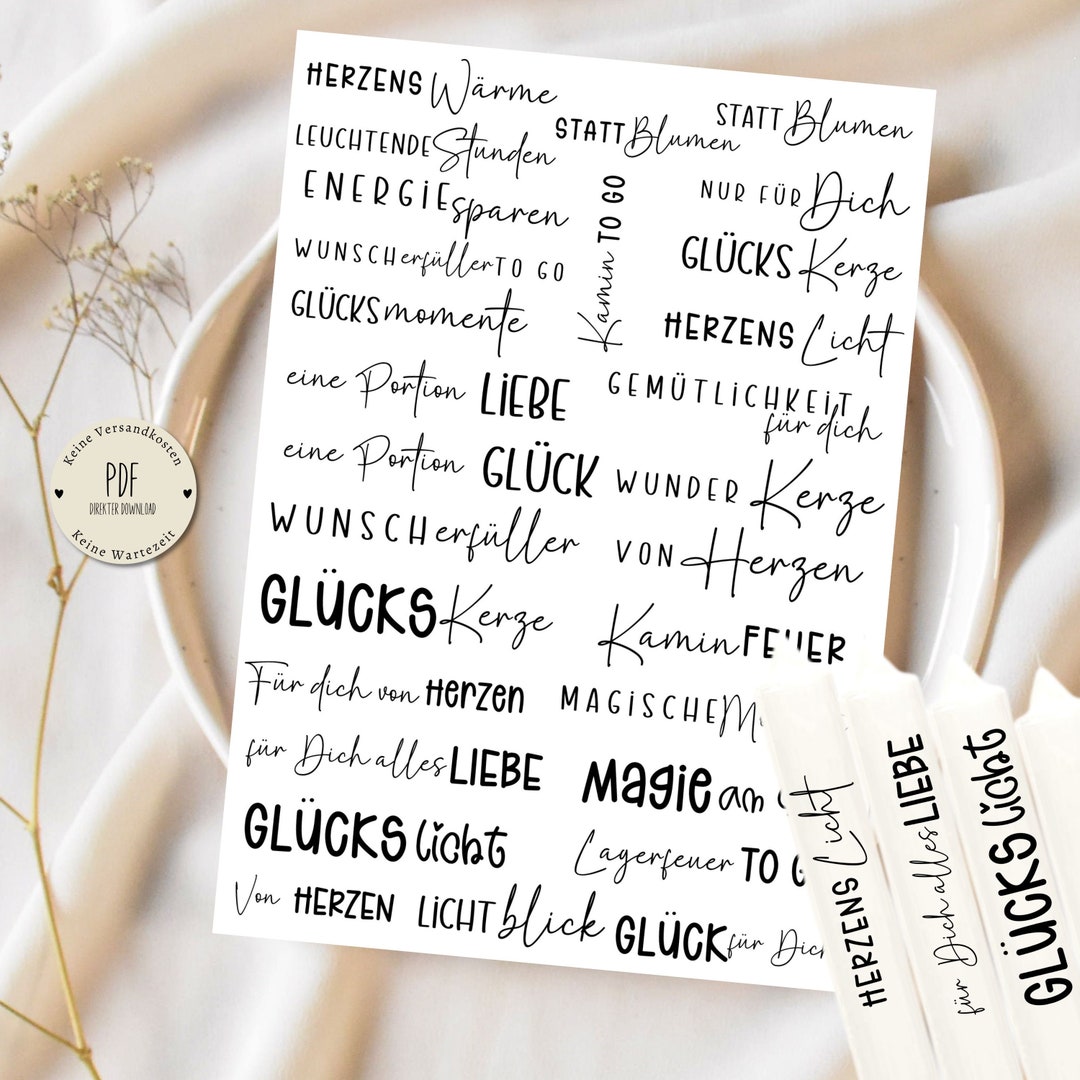 HERZENS Wärme
STATT Blumen
STATT Blumen
LEUCHTENDE Stunden
ENERGIE sparen
NUR FÜR Dich
Kamin TO GO
WUNSCHerfüller TO GO
GLÜCKS Kerze
GLÜCKSmomente
HERZENS Licht
eine Portion LIEBE
GEMÜTLICHKEIT
für dich
eine Portion GLÜCK
WUNDER Kerze
WUNSCHerfüller
VON Herzen
GLÜCKS Kerze
Kamin FEUER
Für dich von Herzen
MAGISCHE
für Dich alles LIEBE
Magie am
GLÜCKS licht
Lagerfeuer TO G
Von HERZEN
LICHTblick
GLÜCK für Dich
Keine Versandkosten
PDF
DIREKTER DOWNLOAD
Keine Wartezeit
HERZENS Licht
für Dich alles LIEBE
GLÜCKS licht